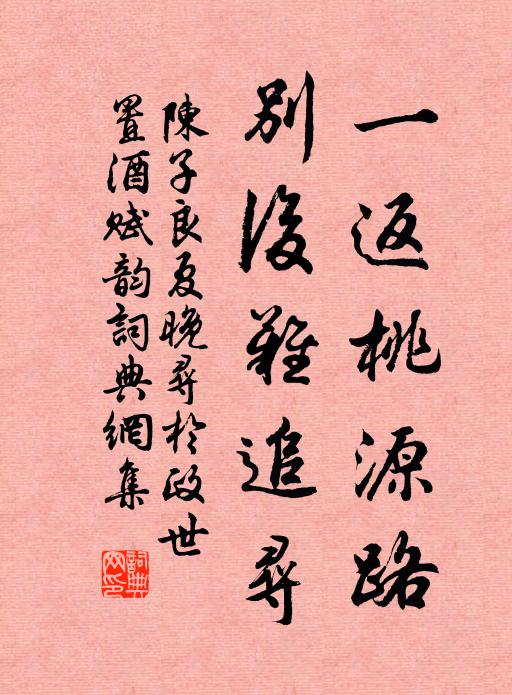 一返桃源路
別後難追尋
陳子良夏晚尋於政世
置酒賦韵詞典網集
詞典
网印